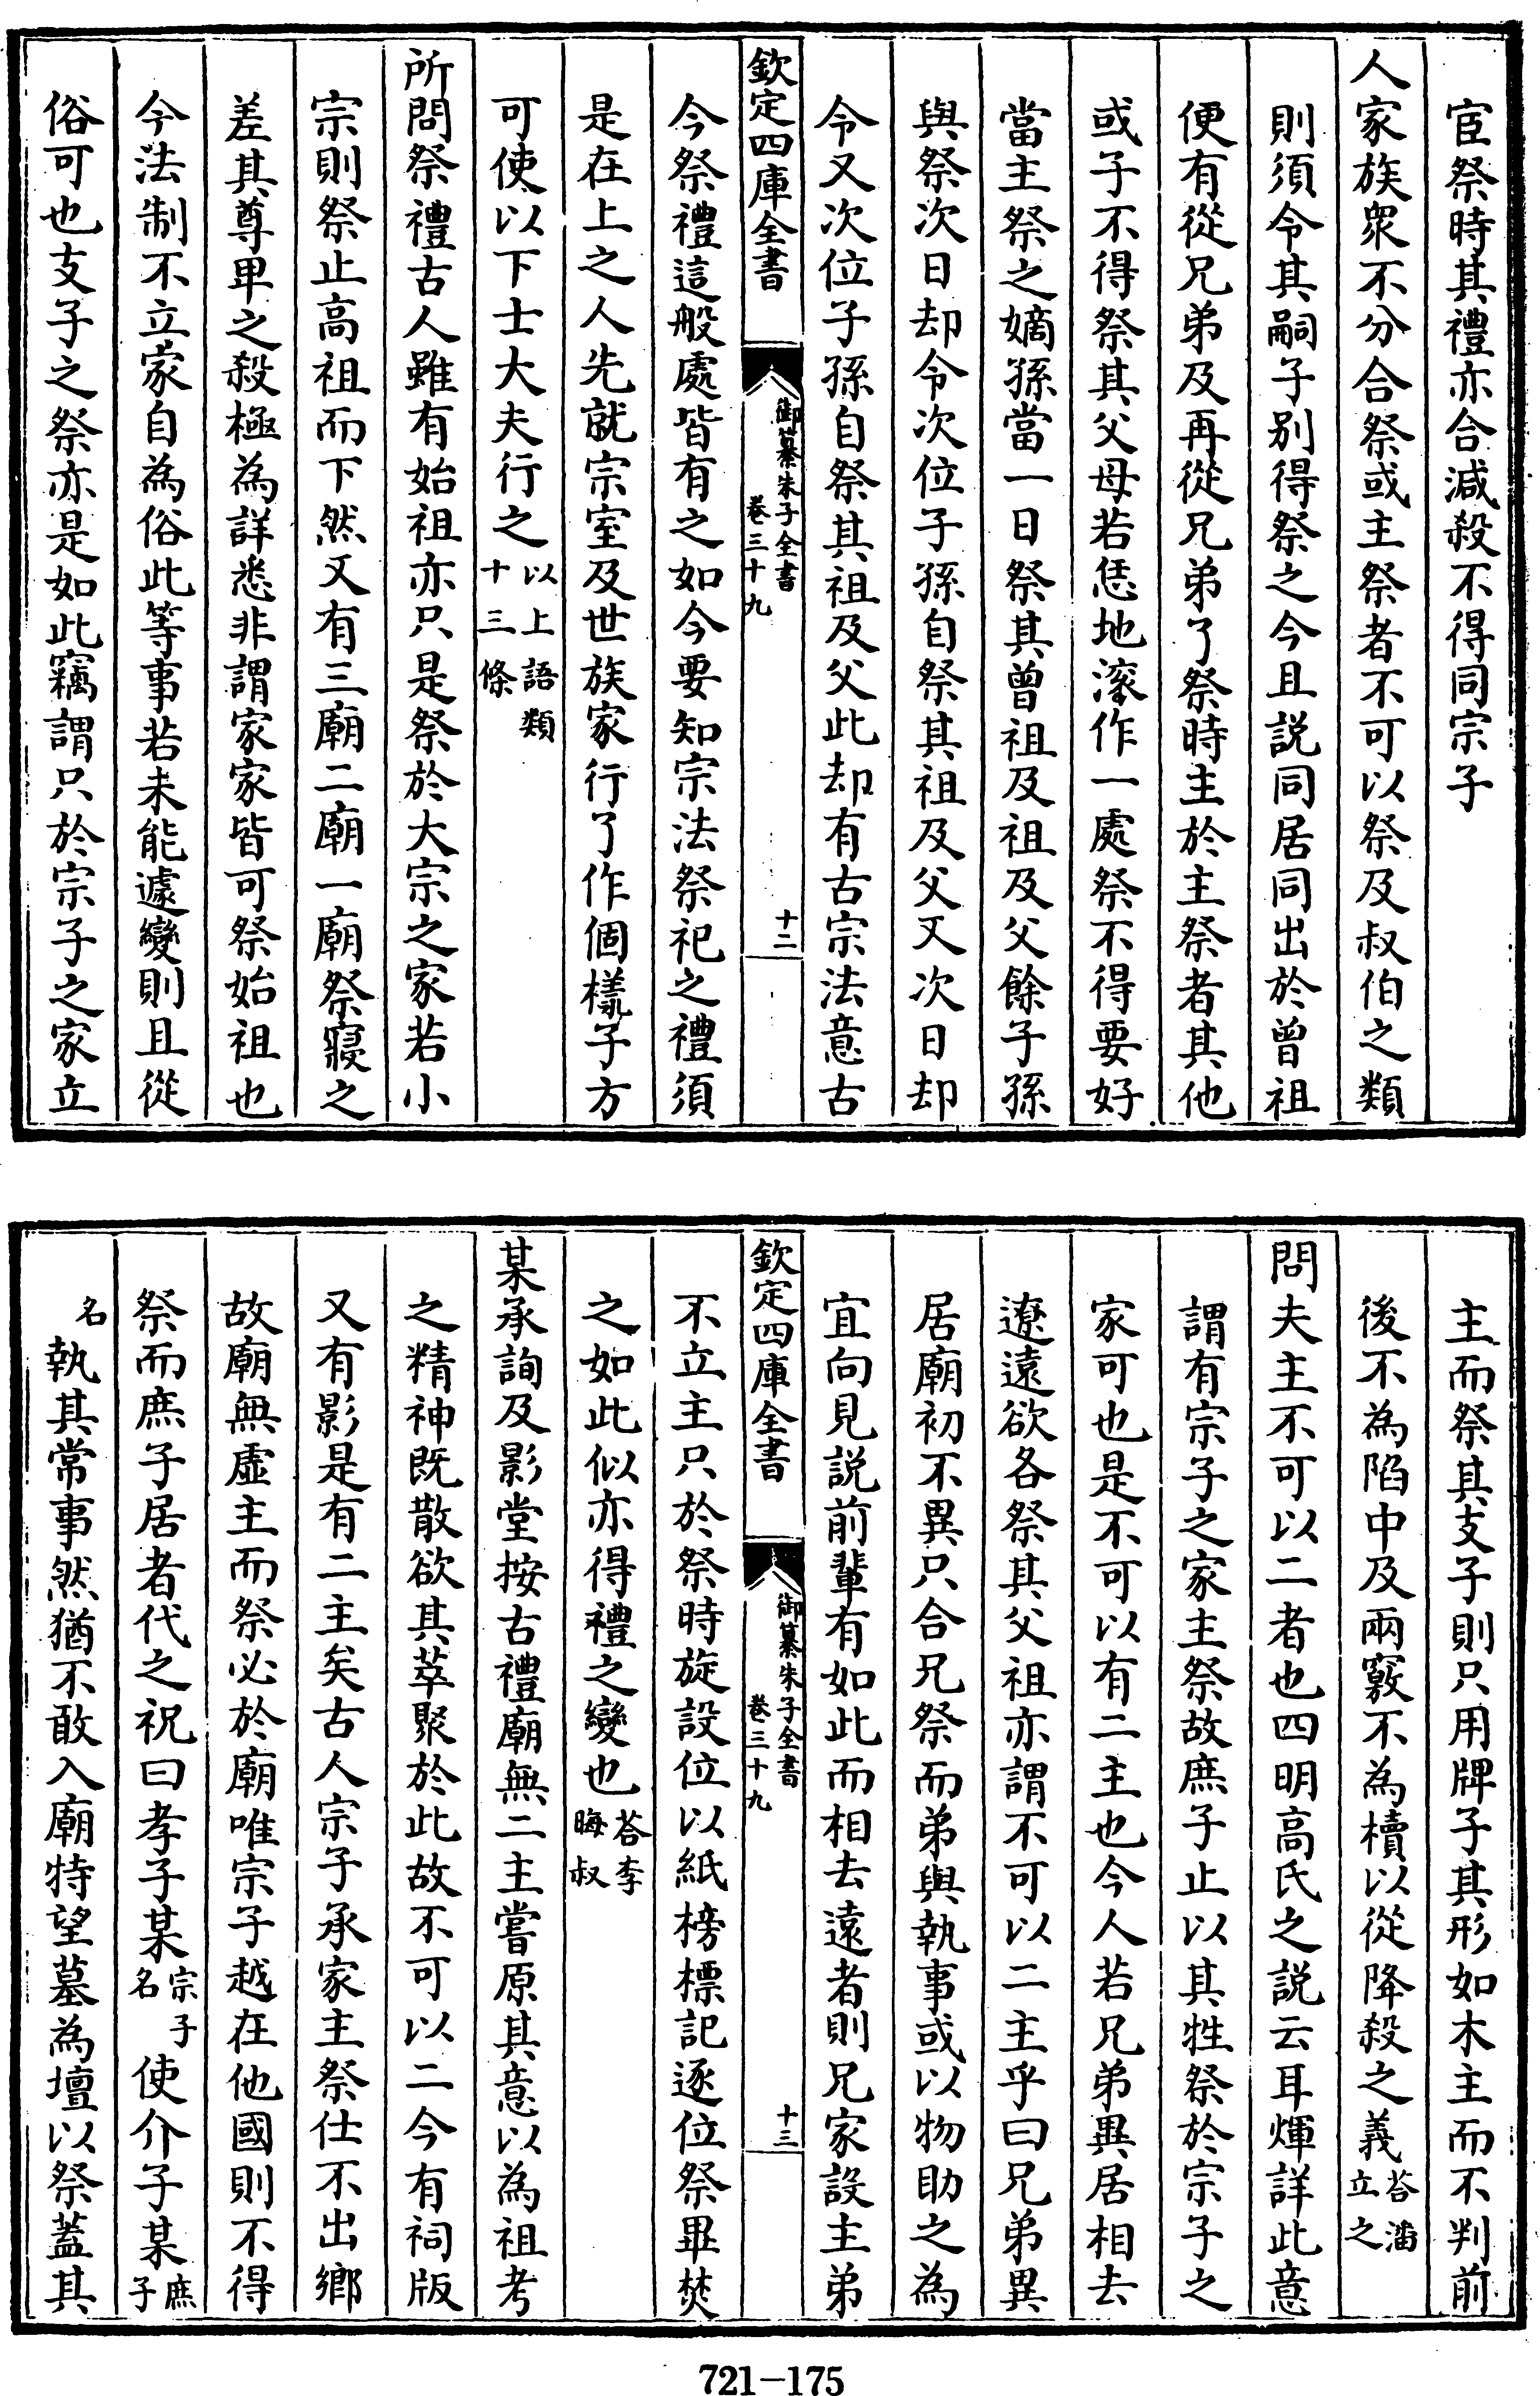 宦祭時其禮亦合減殺不得同宗子
人家族衆不分合祭或主祭者不可以祭及叔伯之類
則須令其嗣子別得祭之今且説同居同出於曾祖
便有從兄弟及再從兄弟了祭時主於主祭者其他
或子不得祭其父母若恁地滚作一處祭不得要好
當主祭之嫡孫當一日祭其曾祖及祖及父餘子孫
與祭次日却令次位子孫自祭其祖及父又次日却
令又次位子孫自祭其祖及父此却有古宗法意古
欽定四庫全書 御纂朱子全書 卷三十九 十二
今祭禮這般處皆有之如今要知宗法祭祀之禮須
是在上之人先就宗室及世族家行了作個樣子方
可使以下士大夫行之以上語類十三條
所問祭禮古人雖有始祖亦只是祭於大宗之家若小
宗則祭止高祖而下然又有三廟二廟一廟祭寢之
差其尊卑之殺極為詳悉非謂家家皆可祭始祖也
今法制不立家自為俗此等事若未能遽變則且從
俗可也支子之祭亦是如此竊謂只於宗子之家立
主而祭其支子則只用牌子其形如木主而不判前
後不為陷中及兩竅不為櫝以從降殺之義荅潘立之
問夫主不可以二者也四明高氏之説云耳煇詳此意
謂有宗子之家主祭故庶子止以其牲祭於宗子之
家可也是不可以有二主也今人若兄弟異居相去
遼遠欲各祭其父祖亦謂不可以二主乎曰兄弟異
居廟初不異只合兄祭而弟與執事或以物助之為
宜向見説前輩有如此而相去遠者則兄家設主弟
欽定四庫全書 御纂朱子全書 卷三十九 十三
不立主只於祭時旋設位以紙榜標記逐位祭畢焚
之如此似亦得禮之變也荅李晦叔
某承詢及影堂按古禮廟無二主嘗原其意以為祖考
之精神既散欲其萃聚於此故不可以二今有祠版
又有影是有二主矣古人宗子承家主祭仕不出鄉
故廟無虛主而祭必於廟唯宗子越在他國則不得
祭而庶子居者代之祝曰孝子某宗子名使介子某庶子
名執其常事然猶不敢入廟特望墓為壇以祭蓋其
721－175